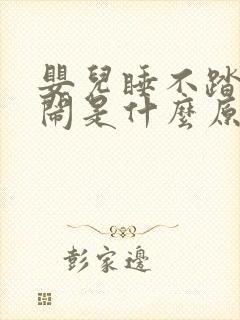 嬰兒睡不踏
鬧是什麼原
彭家邊